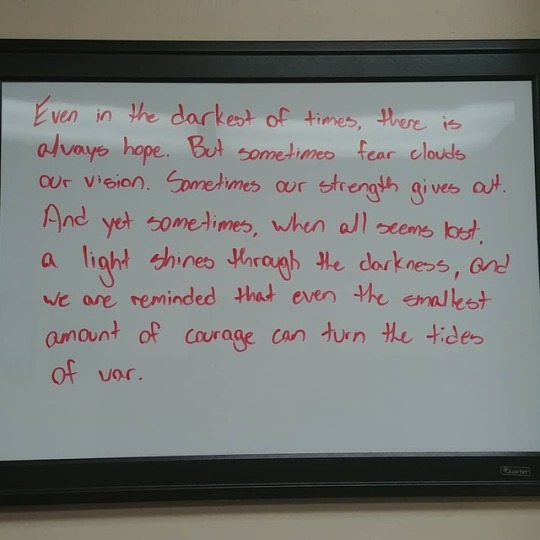 Even in the darkest of times, there is
always hope. But sometimes fear clouds
our vision. Sometimes our strength gives out.
And yet sometimes, when all seems lost,
a light shines through the darkness, and
we are reminded that even the smallest
amount of courage can turn the tides
of war.
Quartet